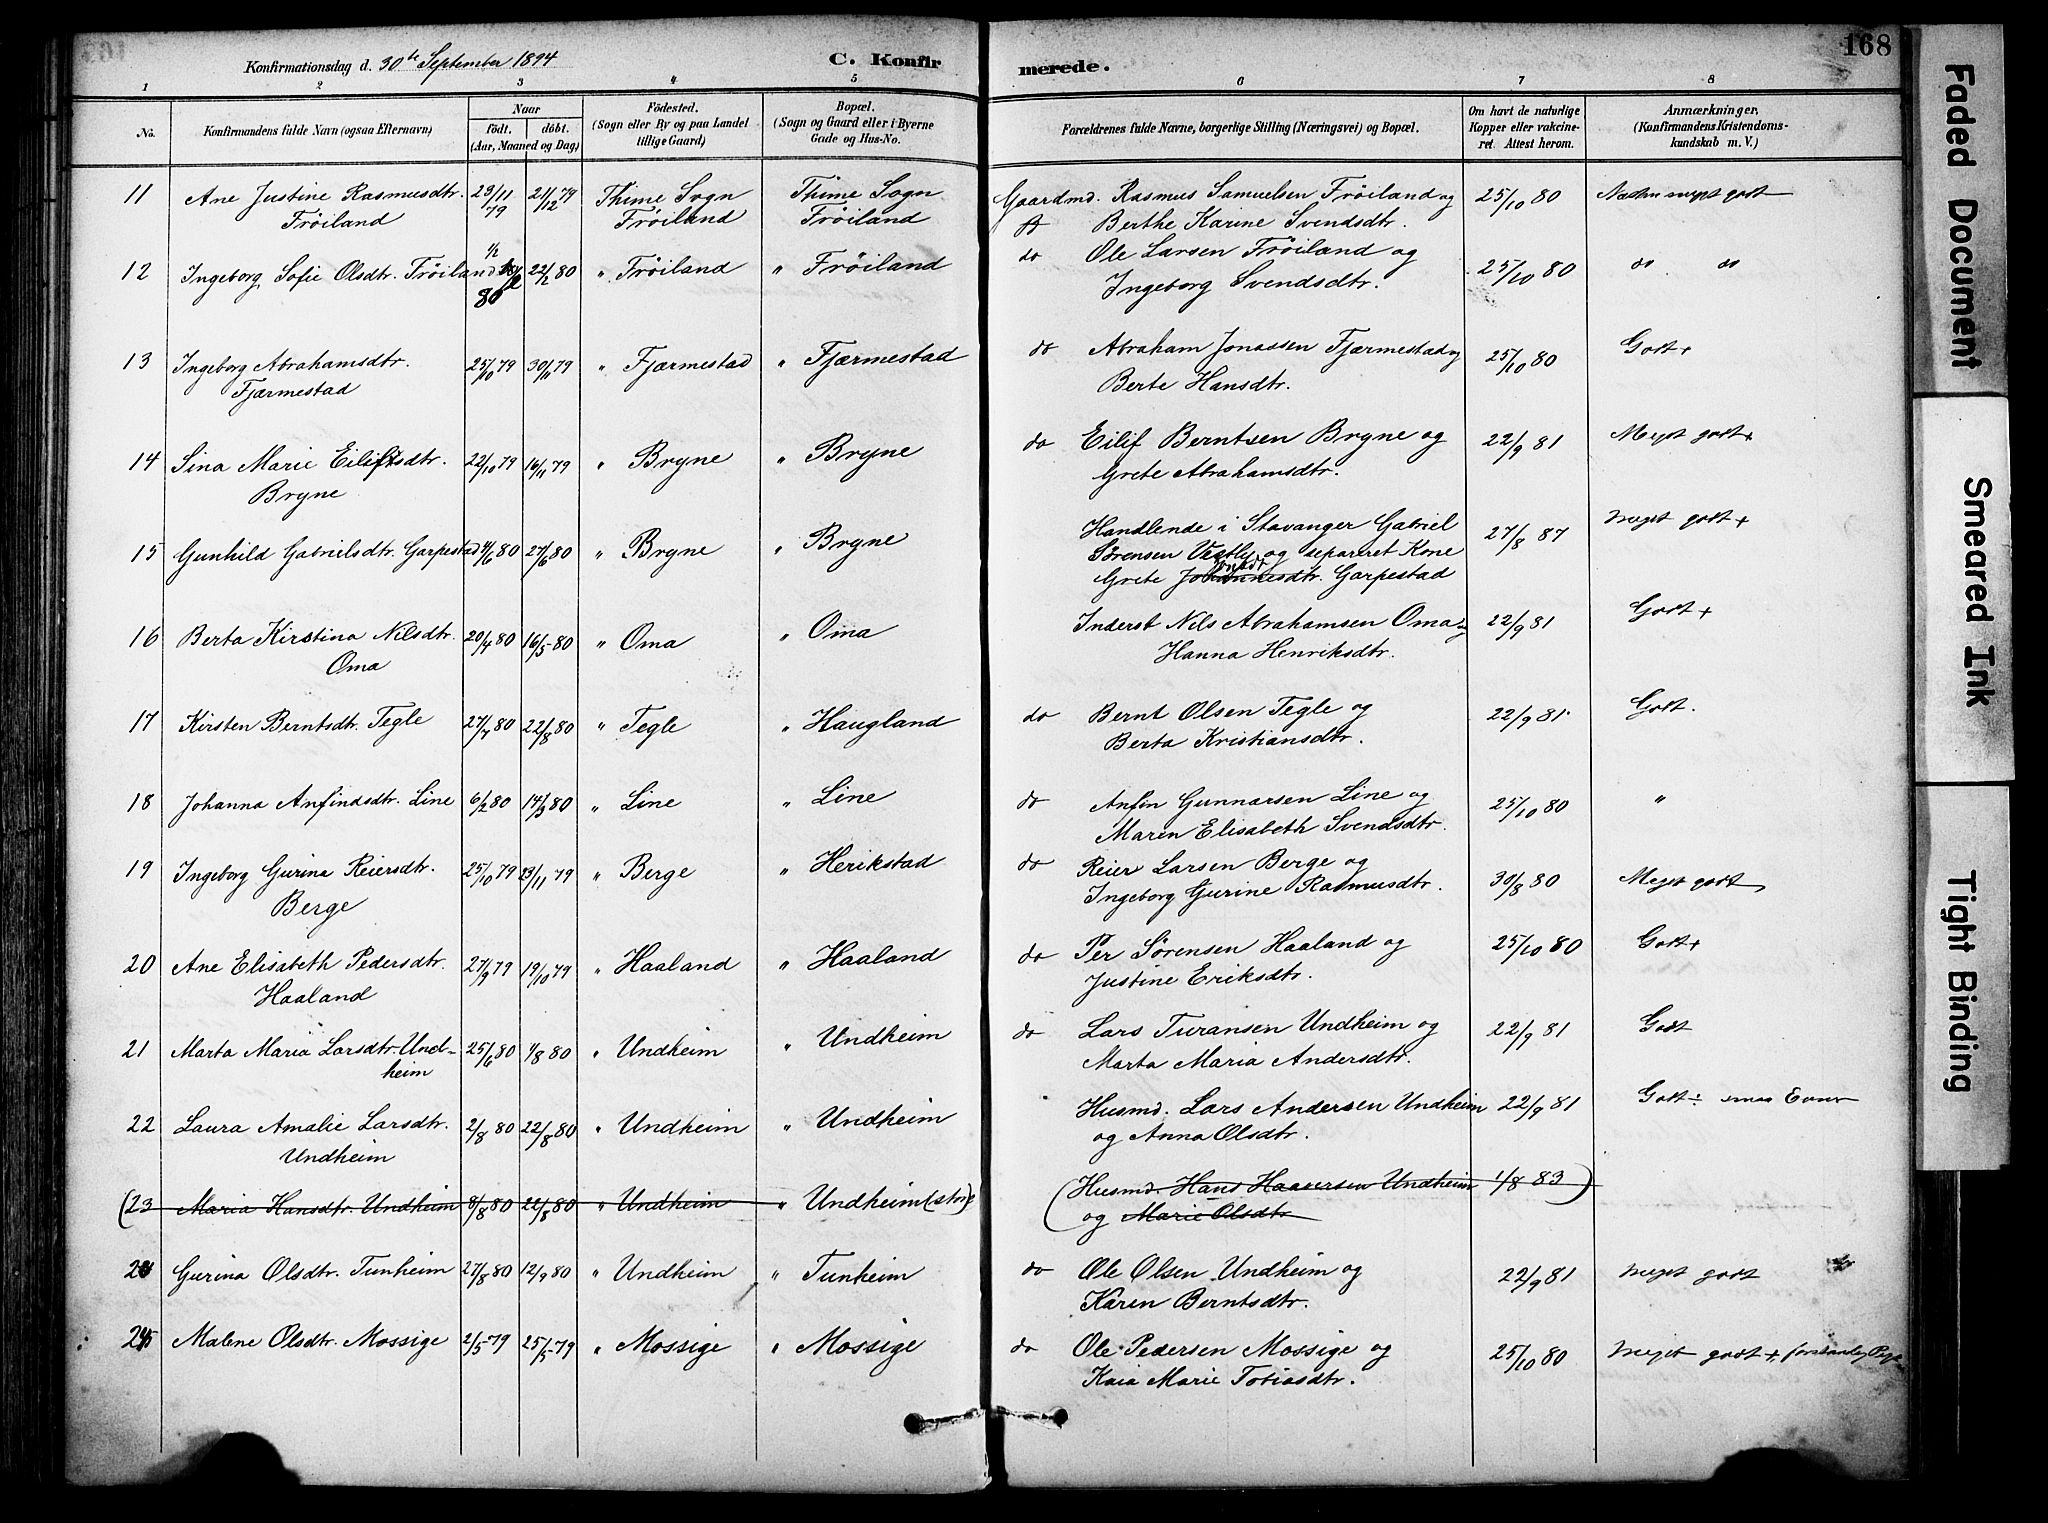 168
Konfirmationsdag d. 30te September 1894
C. Konfir
merede.
1 2 3 4 5 6 7 8
No.
Konfirmandens fulde Navn (ogsaa Efternavn)
Naar
født. døbt.
(Aar, Maaned og Dag)
Födested.
(Sogn eller By og paa Landet
tillige Gaard)
Bopæl.
(Sogn og Gaard eller i Byerne
Gade og Hus-No.
Forældrenes fulde Navne, borgerlige Stilling (Næringsvei) og Bopæl.
Om havt de naturlige
Kopper eller vakcine-
ret. Attest herom.
Anmærkninger,
(Konfirmandens Kristendoms-
kundskab m. V.)
11 Ane Justine Rasmusdtr. 23/11 21/12 79 Thime Sogn Thime Sogn Gaardmd. Rasmus Samuelsen Fröiland og 25/10 80 Næsten meget godt
Fröiland 79 Fröiland Fröiland Berthe Karine Svendsdtr.
12 Ingeborg Sofie Olsdtr. Fröiland 1/2 80 22/2 80 " Fröiland " Fröiland do Ole Larsen Fröiland og 25/10 80 do do
Ingeborg Svendsdtr.
13 Ingeborg Abrahamsdtr. 25/10 79 30/11 79 " Fjærmestad " Fjærmestad do Abraham Jonassen Fjærmestad og 25/10 80 Godt+
Fjærmestad Berte Hansdtr.
14 Sina Marie Eilifsdtr. 22/10 79 16/11 79 " Bryne " Bryne do Eilif Berntsen Bryne og 22/9 81 Meget godt+
Bryne Grete Abrahamsdtr.
15 Gunhild Gabrielsdtr. Garpestad 4/6 80 27/6 80 " Bryne " Bryne Handlende i Stavanger Gabriel 27/8 87 meget godt+
Sörensen Vestly og separeret Kone
Grete Johannesdtr. Garpestad
16 Berta Kirstina Nilsdtr. 20/4 80 16/5 80 " Oma " Oma Inderst Nils Abrahamsen Oma og 22/9 81 Godt+
Oma Hanna Henriksdtr.
17 Kirsten Berntsdtr. Tegle 27/7 80 22/8 80 " Tegle " Haugland do Bernt Olsen Tegle og 22/9 81 Godt.
Berta Kristiansdtr.
18 Johanna Anfindsdtr. Line 6/2 80 14/3 80 " Line " Line do Anfin Gunnarsen Line og 25/10 80 "
Maren Elisabeth Svendsdtr.
19 Ingeborg Gurina Reiersdtr. 25/10 79 23/11 79 " Berge " Herikstad do Reier Larsen Berge og 30/8 80 Meget godt
Berge Ingeborg Gurine Rasmusdtr.
20 Ane Elisabeth Pedersdtr. 27/9 79 19/10 79 " Haaland " Haaland do Per Sörensen Haaland og 25/10 80 Godt+
Haaland Justine Eriksdtr.
21 Marta Maria Larsdtr. Und- 25/6 80 1/8 80 " Undheim " Undheim do Lars Turansen Undheim og 22/9 81 Godt
heim Marta Maria Andersdtr.
22 Laura Amalie Larsdtr. 2/8 80 22/8 80 " Undheim " Undheim Husmd. Lars Andersen Undheim 22/9 81 Godt÷ smaa Evner
Undheim og Anna Olsdtr.
(23 Maria Hansdtr. Undheim 8/8 80 22/8 80 " Undheim " Undheim (store) (Husmd. Hans Haaversen Undheim 1/8 83)
og Marie Olsdtr
24 Gurina Olsdtr. Tunheim 27/8 80 12/9 80 " Undheim " Tunheim do Ole Olsen Undheim og 22/9 81 meget godt
Karen Berntsdtr.
25 Malene Olsdtr. Mossige 2/5 79 25/5 79 " Mossige " Mossige do Ole Pedersen Mossige og 25/10 80 meget godt +, forstandig Pige
Kaia Marie Tobiasdtr.
Faded Document
Smeared Ink
Tight Binding